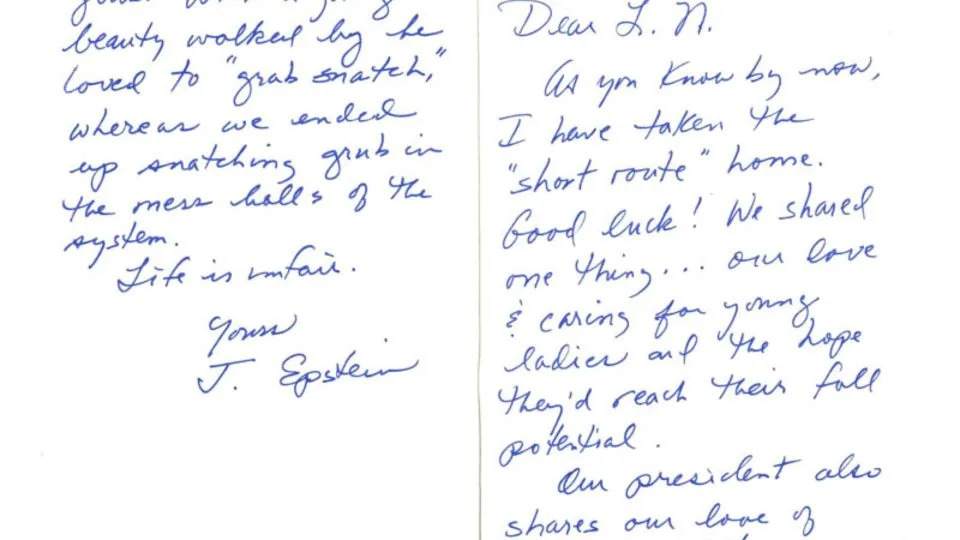 beauty walked by he
loved to "grab snatch,"
whereas we ended
up snatching grub in
the mess halls of the
system.
Life is unfair.
Yours
J. Epstein
Dear L. N.
As you know by now,
I have taken the
"short route" home.
Good luck! We shared
one thing... our love
& caring for young
ladies and the hope
they'd reach their full
potential.
Our president also
shares our love of